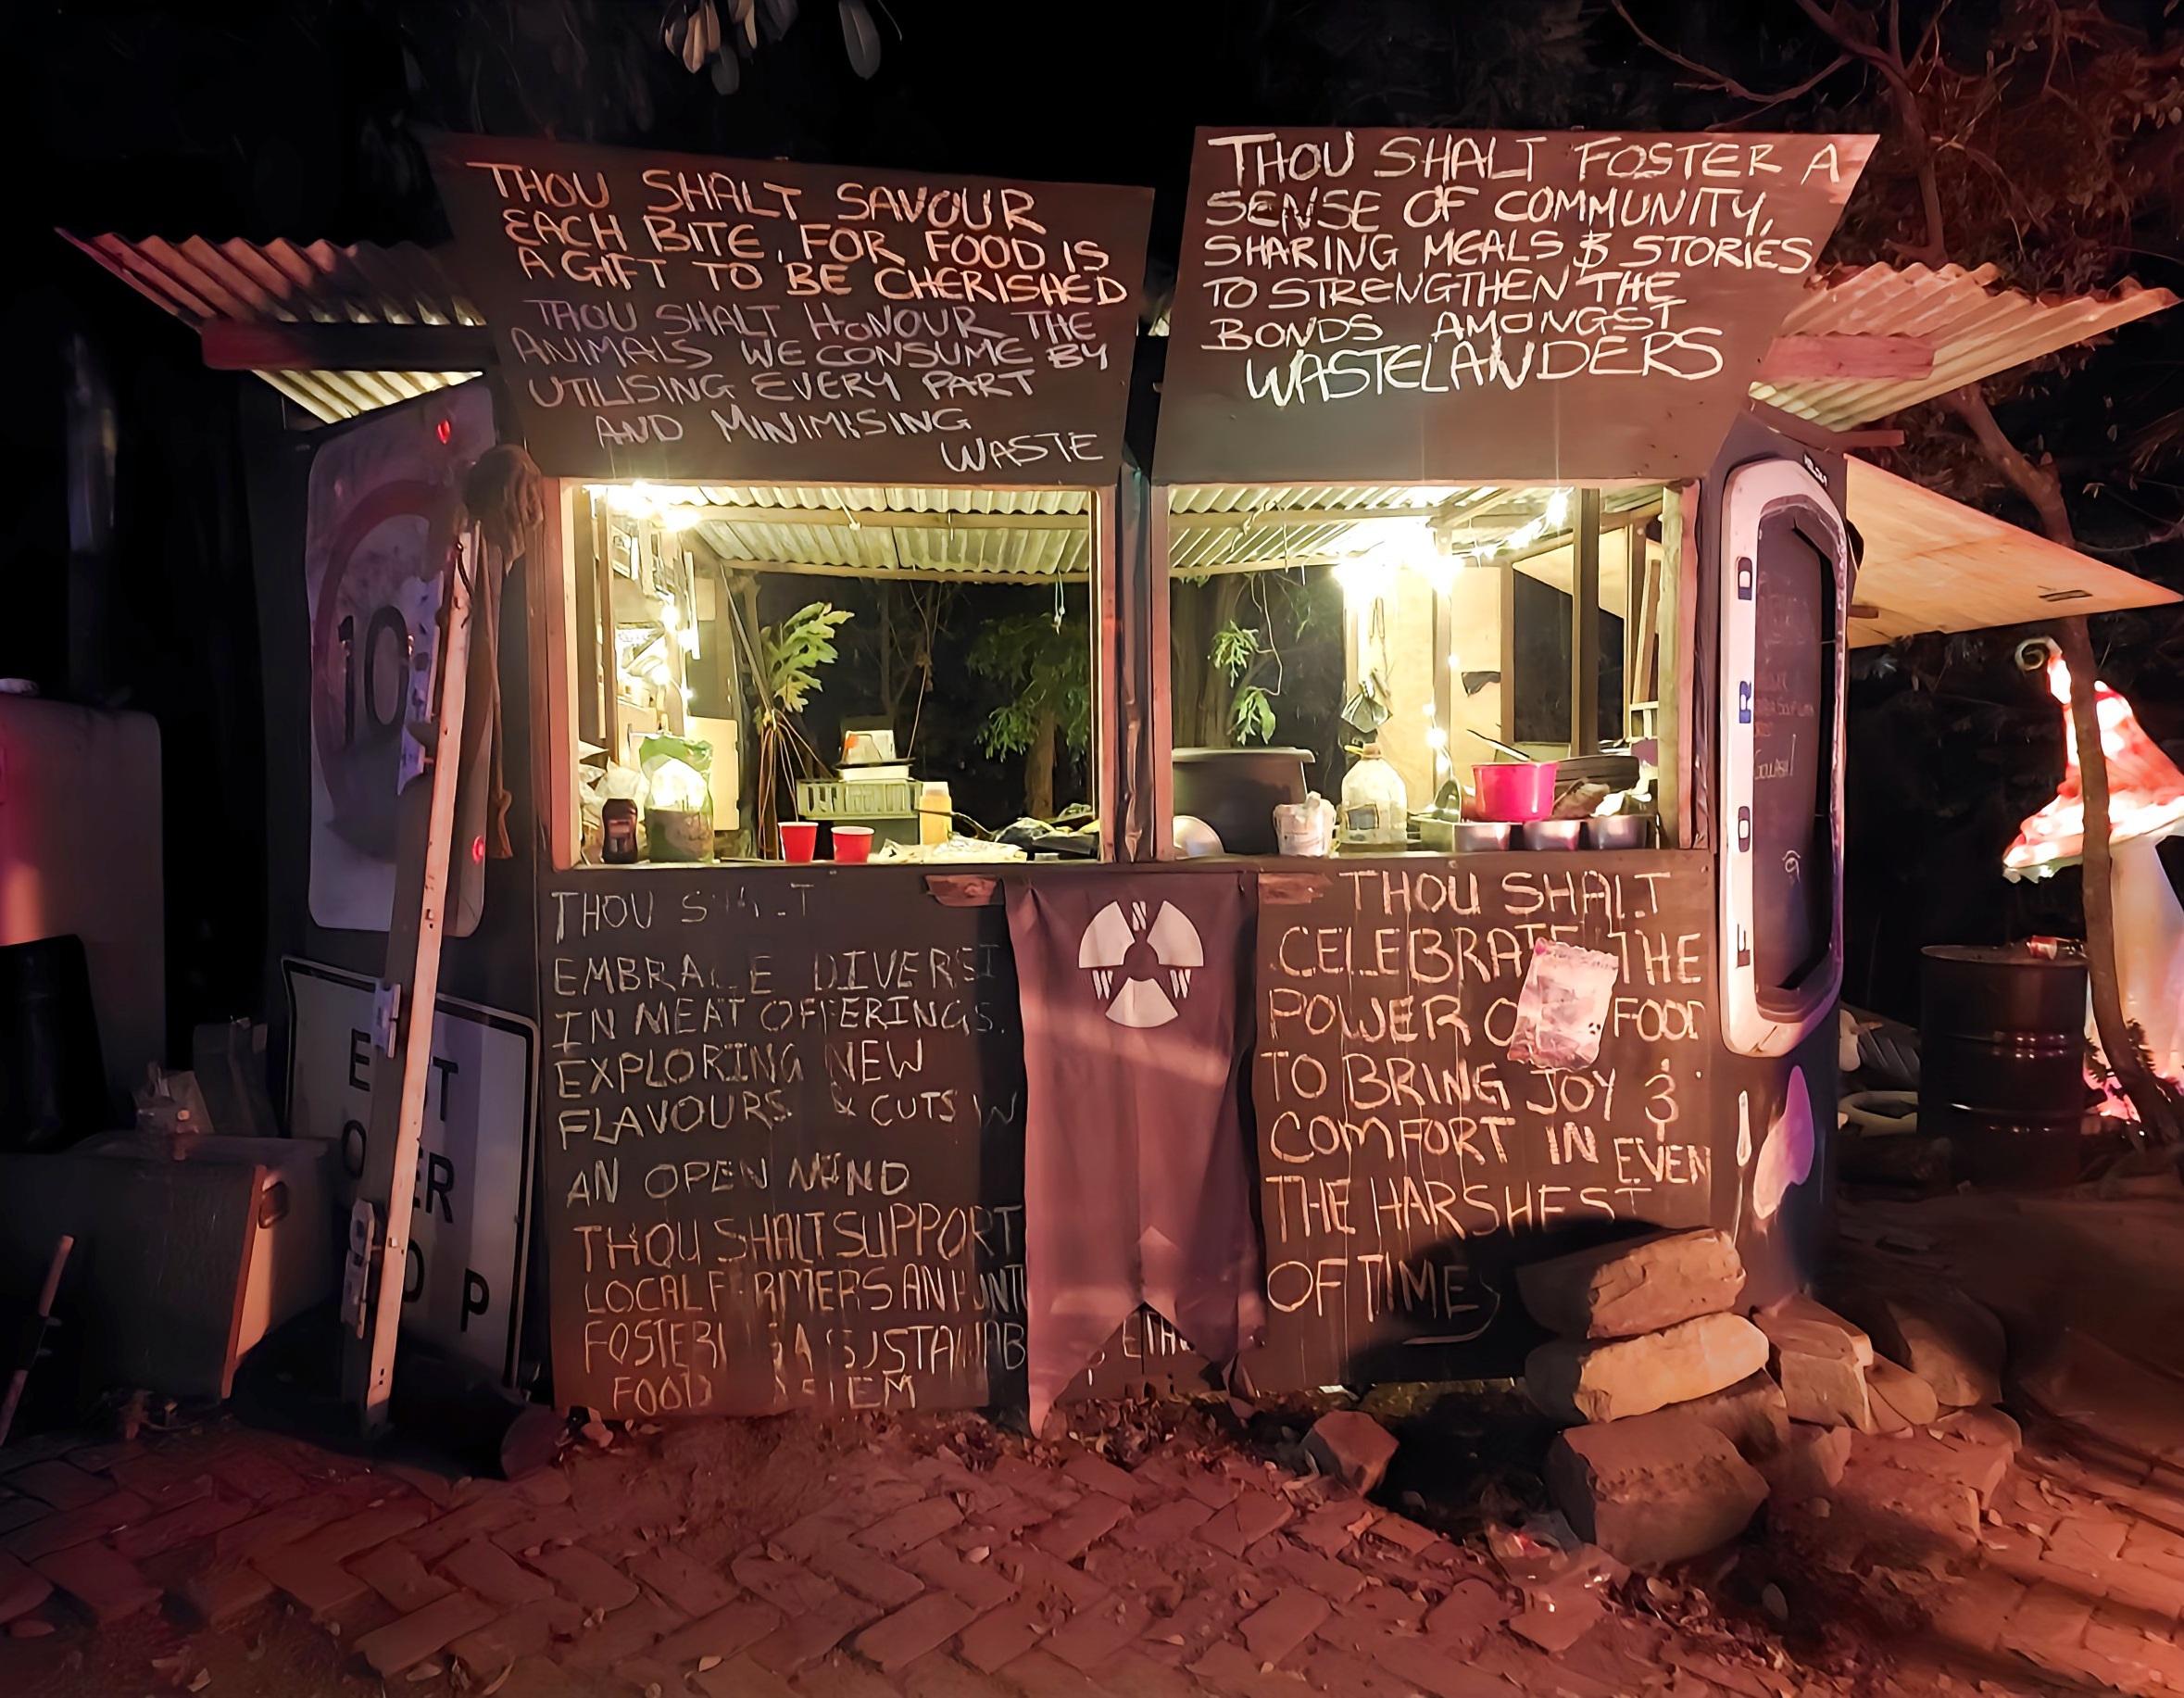 THOU SHALT SAVOUR
EACH BITE, FOR FOOD IS
A GIFT TO BE CHERISHED
THOU SHALT HONOUR THE
ANIMALS WE CONSUME BY
UTILISING EVERY PART
AND MINIMISING
WASTE
THOU SHALT FOSTER A
SENSE OF COMMUNITY,
SHARING MEALS & STORIES
TO STRENGTHEN THE
BONDS AMONGST
WASTELANDERS
10
FORD
GOULASH
THOU
EMBRACE DIVERSI
IN MEAT OFFERINGS.
EXPLORING NEW
FLAVOURS & CUTS W
AN OPEN MIND
THOU SHALT SUPPORT
LOCAL F RMERS AN
FOSTERI A SUSTAINAB
FOOD
THOU SHALT
CELEBRATE THE
POWER O FOOD
TO BRING JOY &
COMFORT IN EVEN
THE HARSHEST
OF TIMES
E T
O ER
O P